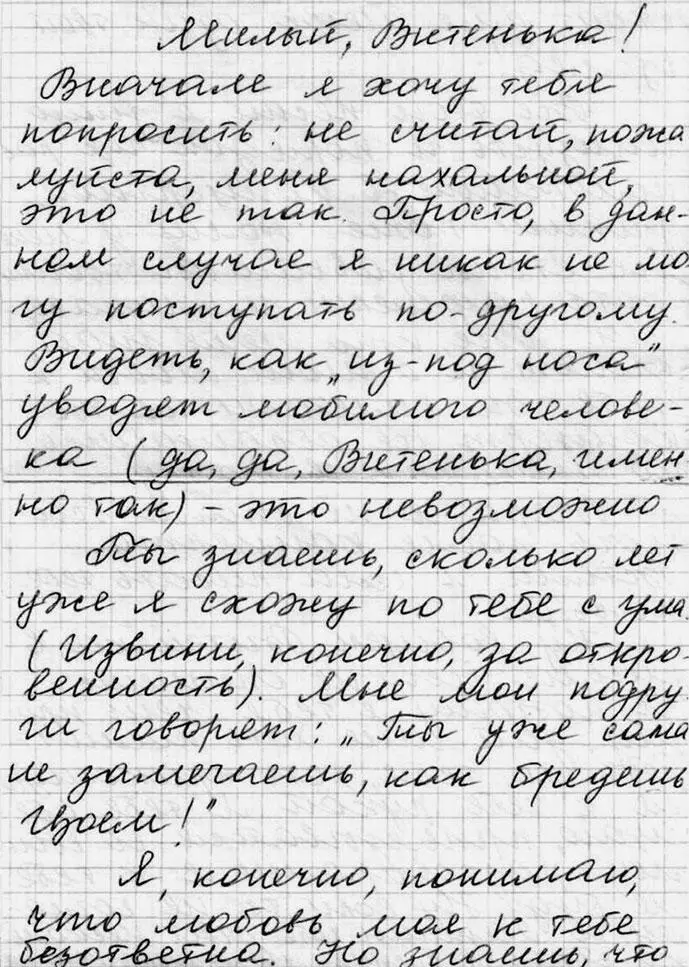 Милый, Витенька!
Вначале я хочу тебя
попросить: не считай, пожа
луйста, меня нахальной,
это не так. Просто, в дан-
ном случае я никак не мо
гу поступать по-другому.
Видеть, как „из-под носа"
уводят любимого челове-
ка (да, да, Витенька, имен-
но так) - это невозможно
Ты знаешь, сколько лет
уже я схожу по тебе с ума.
(Извини, конечно, за откро-
венность). Мне мои подру-
ги говорят: „Ты уже сама
не замечаешь, как бредешь
Гвоем!"
Я, конечно, понимаю,
что любовь моя к тебе
безответна. Но знаешь, что